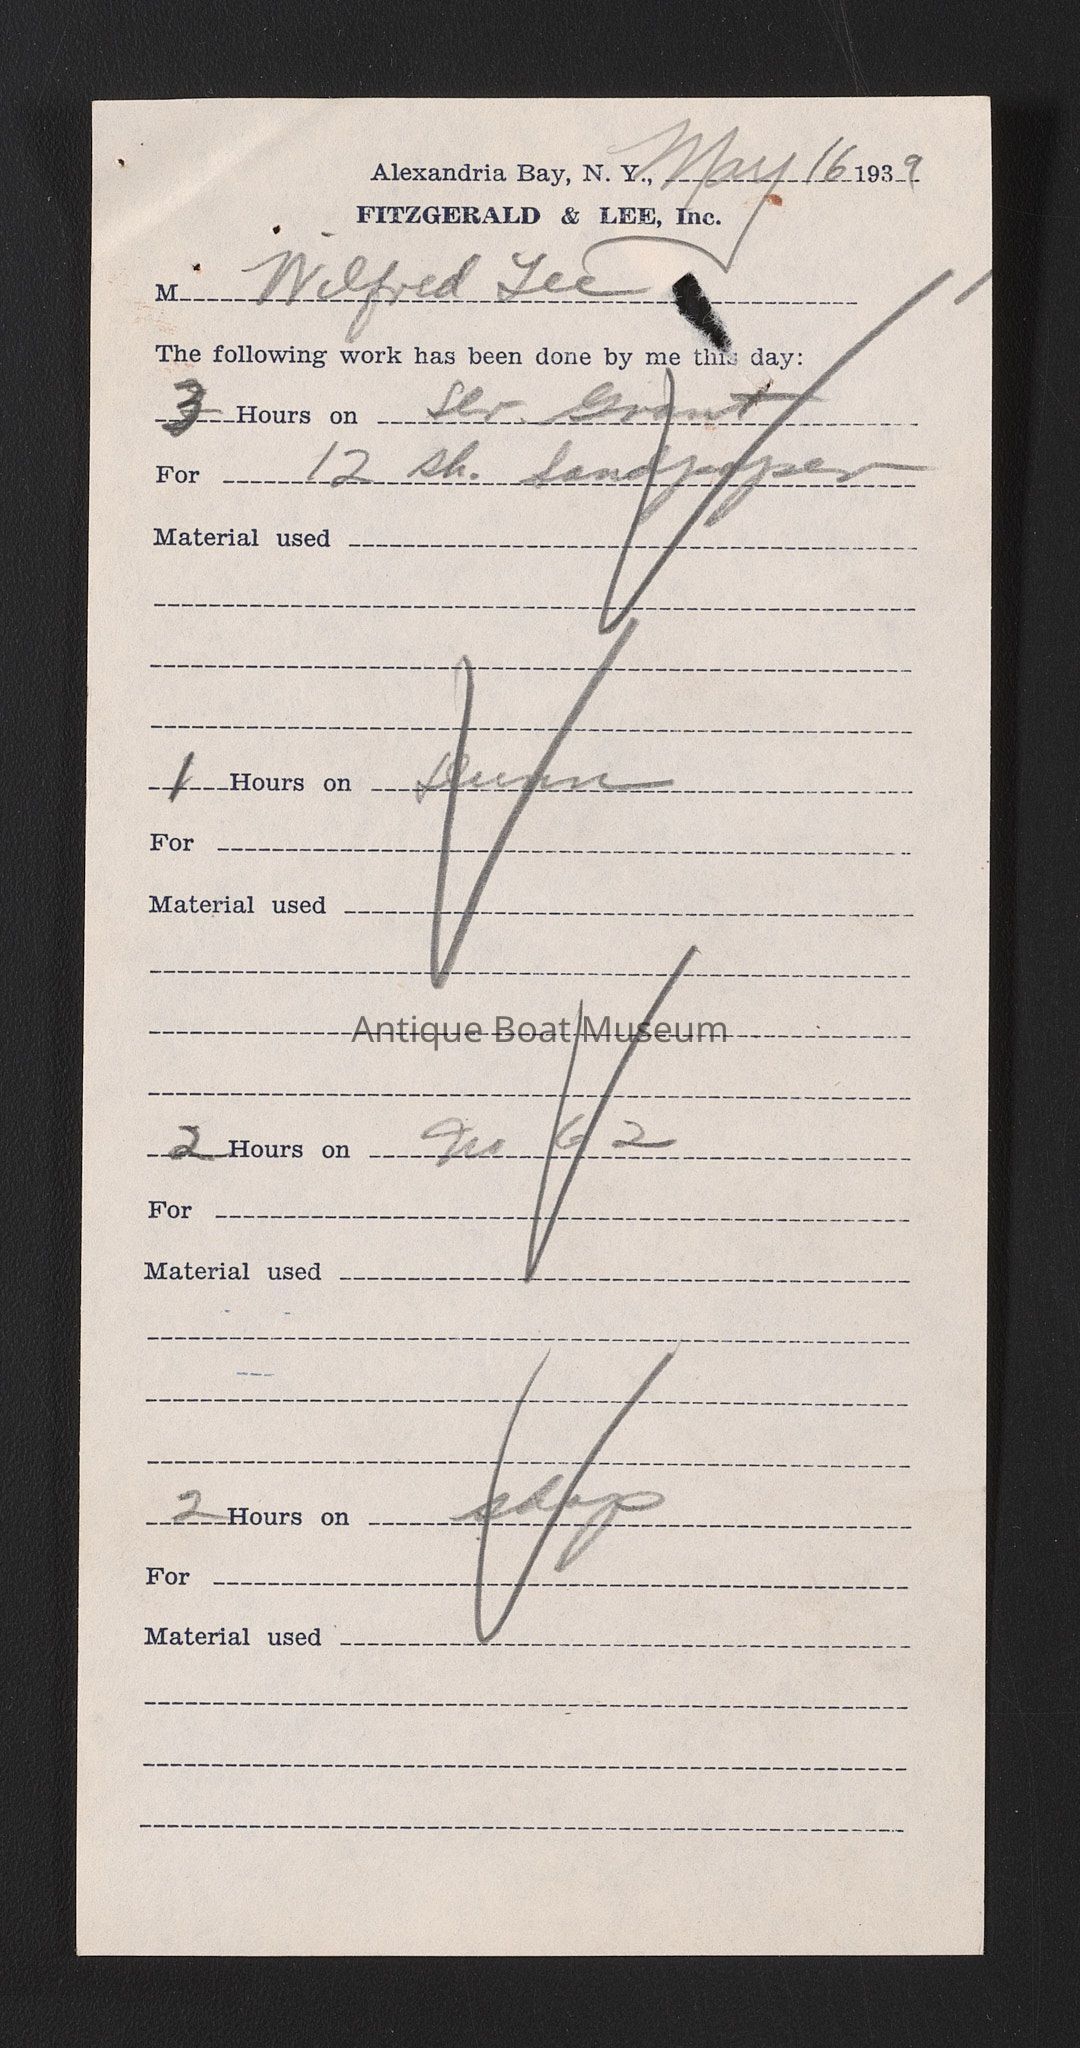 Alexandria Bay, N. Y., May 16 1939
FITZGERALD & LEE, Inc.
M Wilfred Lee
The following work has been done by me this day:
3 Hours on Grant
For 12 sh. Sandpaper
Material used
1 Hours on Dunn
For
Material used
Antique Boat Museum
2 Hours on No 62
For
Material used
2 Hours on shop
For
Material used